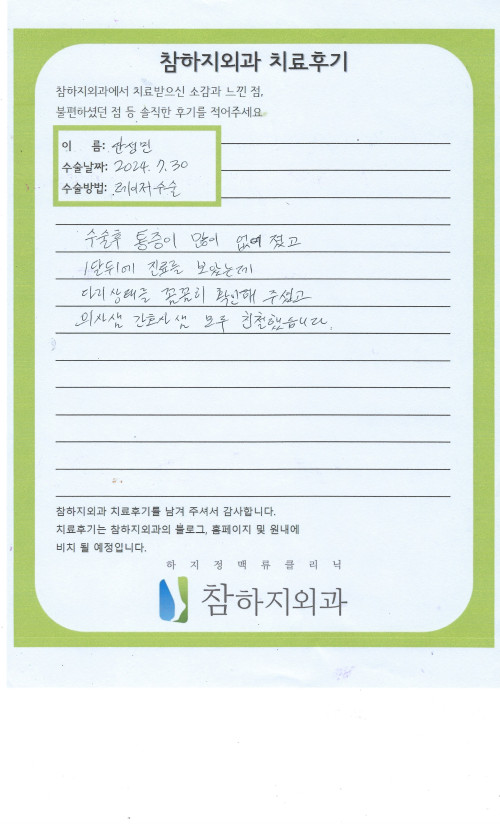 참하지외과 치료후기
참하지외과에서 치료받으신 소감과 느낀 점,
불편하셨던 점 등 솔직한 후기를 적어주세요.
이 름: 안성면
수술날짜: 2024. 7. 30
수술방법: 레이저수술
수술후 통증이 많이 없어 졌고
1달뒤에 진료를 보았는데
다리상태를 꼼꼼히 확인해 주셨고
의사샘 간호사샘 모두 친절했습니다.
참하지외과 치료후기를 남겨 주셔서 감사합니다.
치료후기는 참하지외과의 블로그, 홈페이지 및 원내에
비치 될 예정입니다.
하지정맥류클리닉
참하지외과